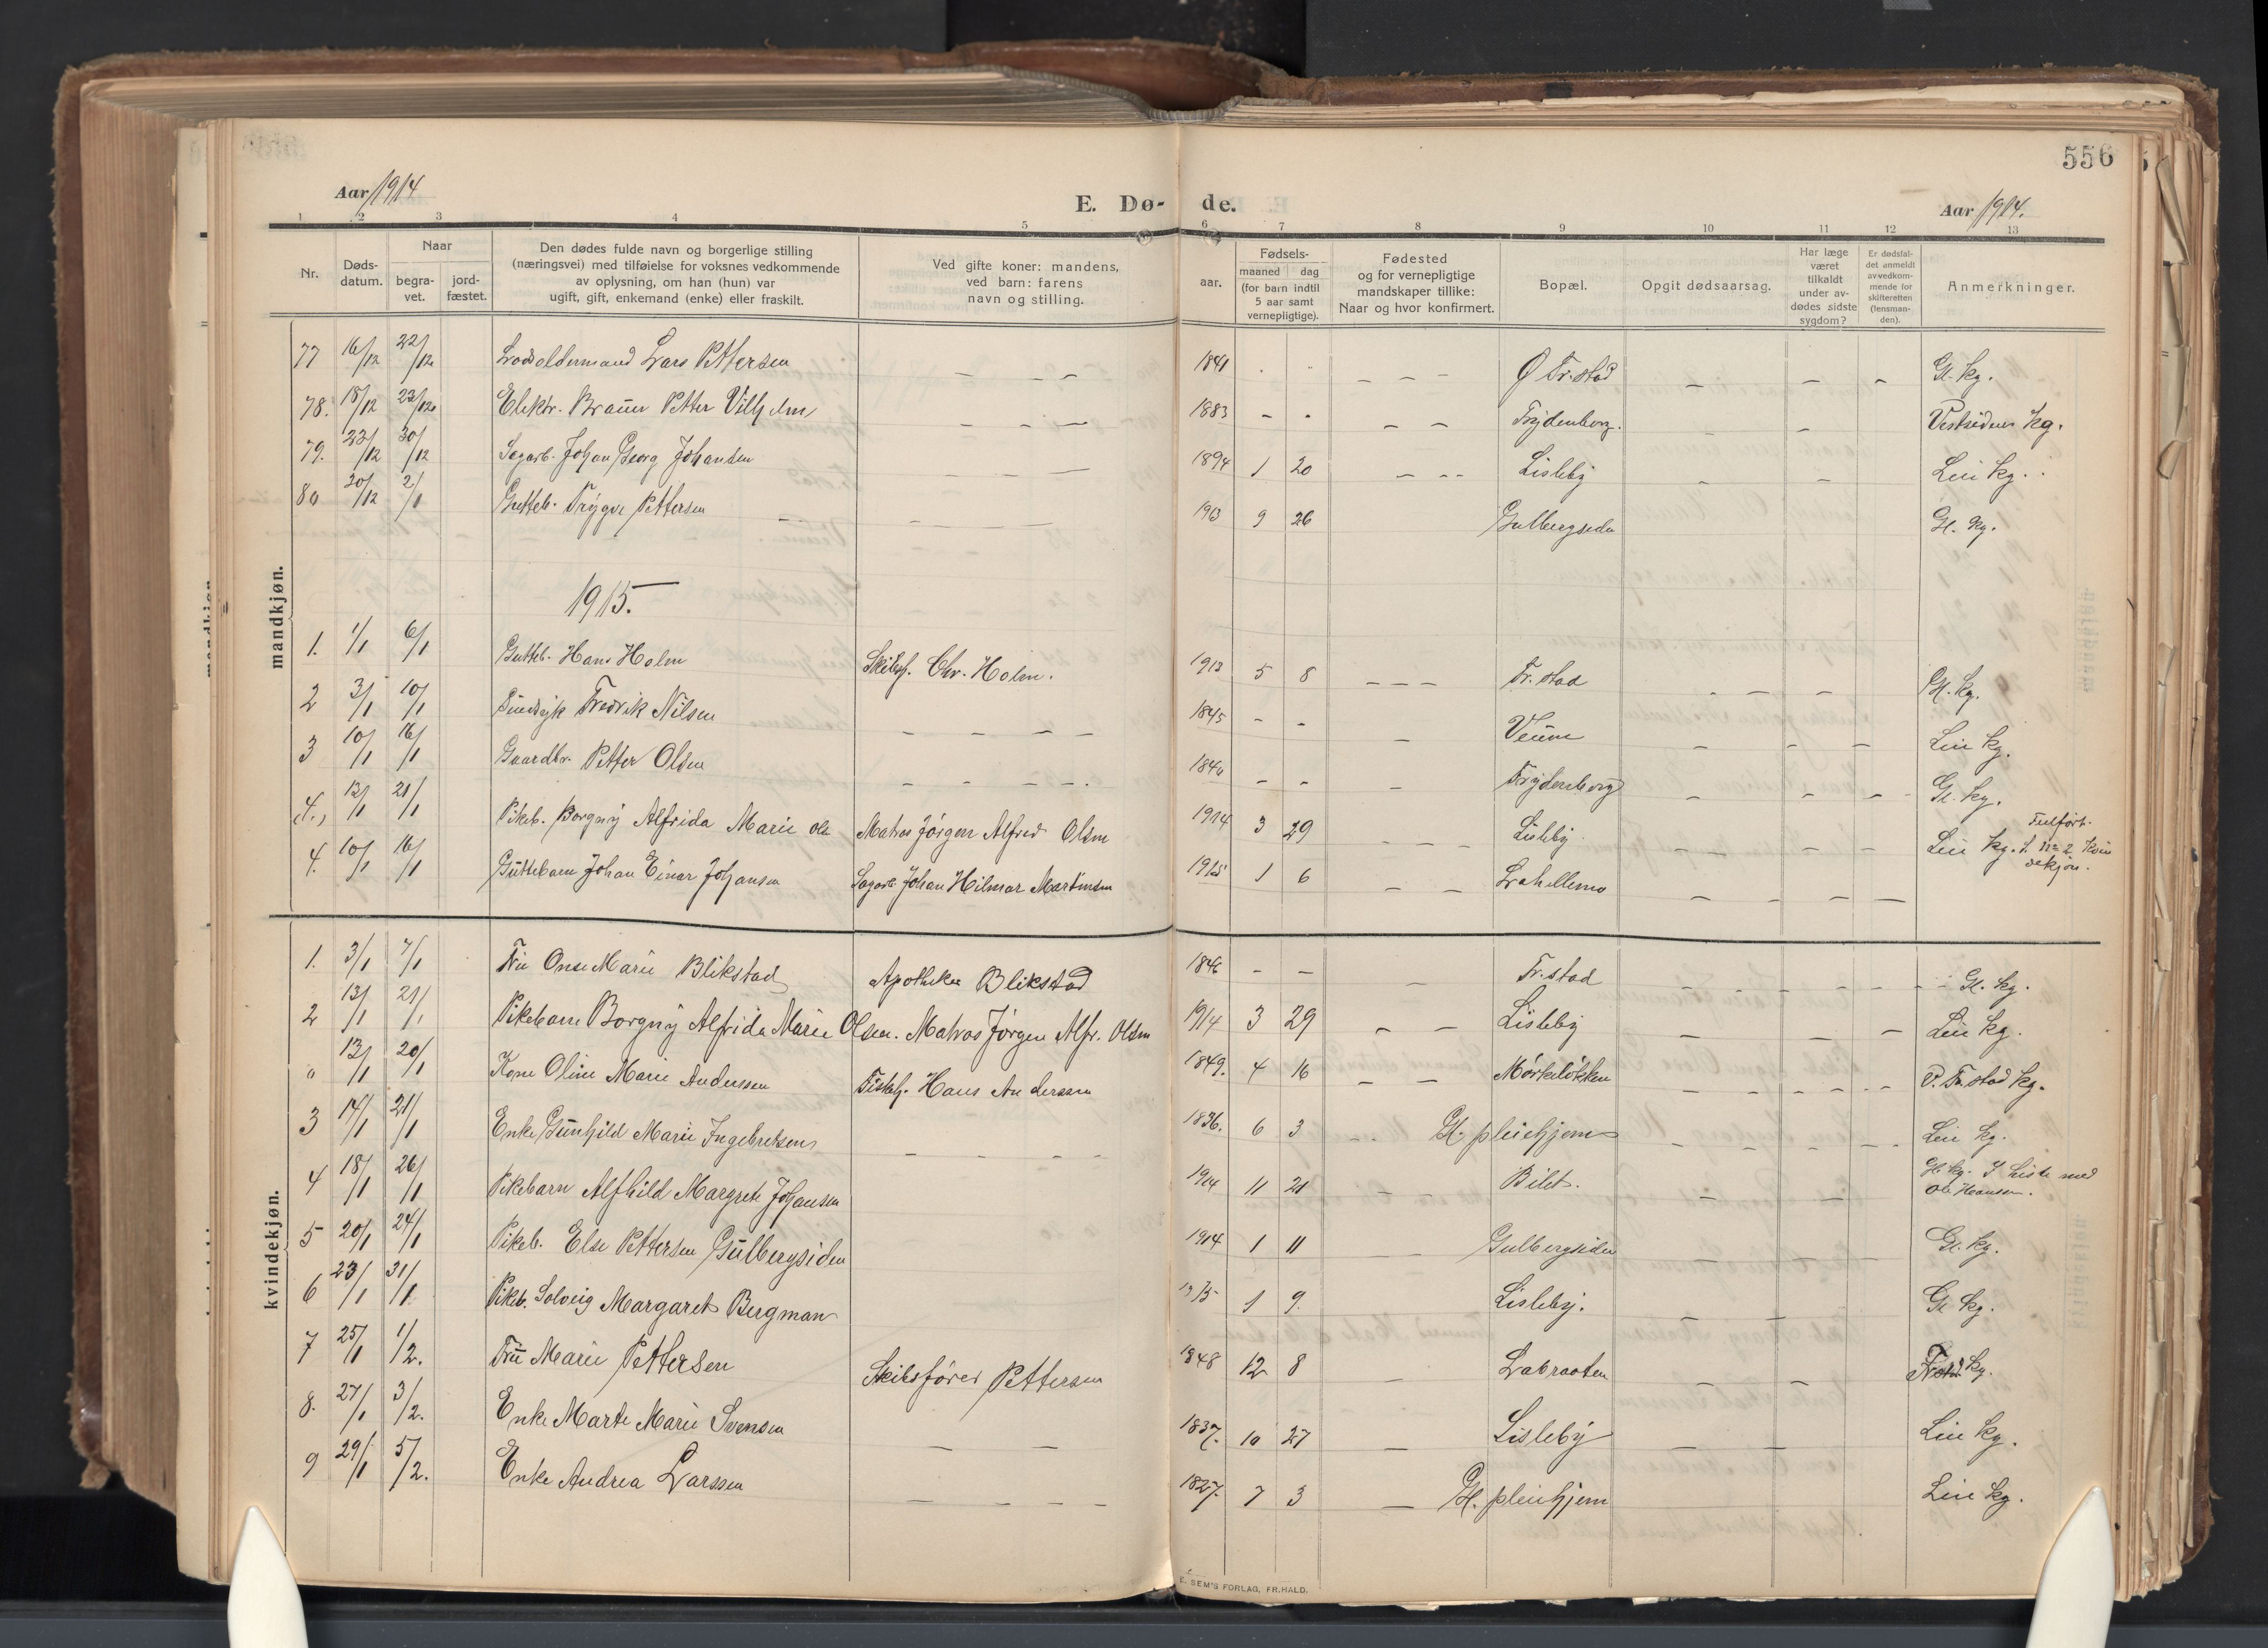 556
Aar 1914
E. Dø-
de.
Aar 1914.
1 2 3 4 5 6 7 8 9 10 11 12 13
Nr.
Døds-
datum.
Naar
begra-
vet.
jord-
fæstet.
Den dødes fulde navn og borgerlige stilling
(næringsvei) med tilføielse for voksnes vedkommende
av oplysning, om han (hun) var
ugift, gift, enkemand (enke) eller fraskilt.
Ved gifte koner: mandens,
ved barn: farens
navn og stilling.
Fødsels-
aar.
maaned dag
(for barn indtil
5 aar samt
vernepligtige).
Fødested
og for vernepligtige
mandskaper tillike:
Naar og hvor konfirmert.
Bopæl.
Opgit dødsaarsag.
Har læge
været
tilkaldt
under av-
dødes sidste
sygdom?
Er dødsfal-
det anmeldt
av vedkom-
mende for
skifteretten
(lensman-
den).
Anmerkninger.
mandkjøn.
77 16/12 22/12 Lodsoldermand Lars Pettersen — — — 1841 — — — Ø Fr.stad — — — Gl. kg.
78. 18/12 23/12 Elektr. Braüer Petter Vilhelm — — — 1883 - - — — Frydenberg. — — Vestsidens kg.
79. 23/12 30/12 Sagarb. Johan Georg Johansen — — — 1894 1 20 — — Lisleby — — Leie kg.
80 20/12 2/1 Gutteb. Trygve Pettersen — — — 1913 9 26 Gulbergsiden Gl. kg.
1915.
1. 1/1 6/1 Gutteb. Hans Holm Skibsf. Chr. Holm. 1913 5 8 — — — Fr.stad — — — Gl. kg.
2 3/1 10/1 Fredrik Nilsen — — — — 1845 - - — Veüm — — — Leie kg.
3 10/1 16/1 Gaardbr. Petter Olsen — — — — 1840 - - — Frydenberg — — — Gl. kg.
(4.) 13/1 21/1 Pikeb. Borgny Alfrida Marie Ols Matros Jørgen Alfred Olsen 1914 3 29 — — — Lisleby — — — Leie kg. Feilført. f. No 2 kvin
dekjøn.
4. 10/1 16/1 Güttebarn Johan Einar Johansen Sagarb. Johan Hilmar Martinsen 1915 1 6 — — Lahellemo — — — —
kvindekjøn.
1. 3/1 7/1 Frü Onse Marie Blikstad Apotheker Blikstad 1846 — — — Fr.stad — — — Gl. kg.
2 13/1 21/1 Pikebarn Borgny Alfrida Marie Olsen. Matros Jørgen Alfr. Olsen 1914 3 29 — — Lisleby — — Leie kg.
" 13/1 20/1 Kone Oline Marie Andersen Fiskeh. Hans Anderssen 1849. 4 16 — — Mørkeløkken — — — — P. Fr.stad kg.
3 14/1 21/1 Enke Günhild Marie Ingebretsen — — — — 1836. 6 3 — Gl. pleiehjem — — — — Leie kg.
4 18/1 26/1 Pikebarn Alfhild Margrete Johansen 1914 11 21 — — Bilet. Gl. kg. I kiste med
Ole Hansen.
5 20/1 24/1 Pikeb. Else Pettersen Gülbergsiden 1914 1 11 — — Gulbergsiden — — — Gl. kg.
6 23/1 31/1 Pikeb. Solveig Margaret Bergman 1915 1 9. Lisleby. — — Gl kg.
7 25/1 1/2. Frü Marie Pettersen Skibsfører Pettersen 1848 12 8 — Labraaten — — kg.
8. 27/1 3/2. Enke Marte Marie Svensen — — 1837. 10 27 — Lisleby — — Leie kg.
9 29/1 5/2. Enke Andrea Larssen — — — — 1827. 7 3 — Gl. pleiehjem Leie kg.
E. SEM'S FORLAG, FR.HALD.